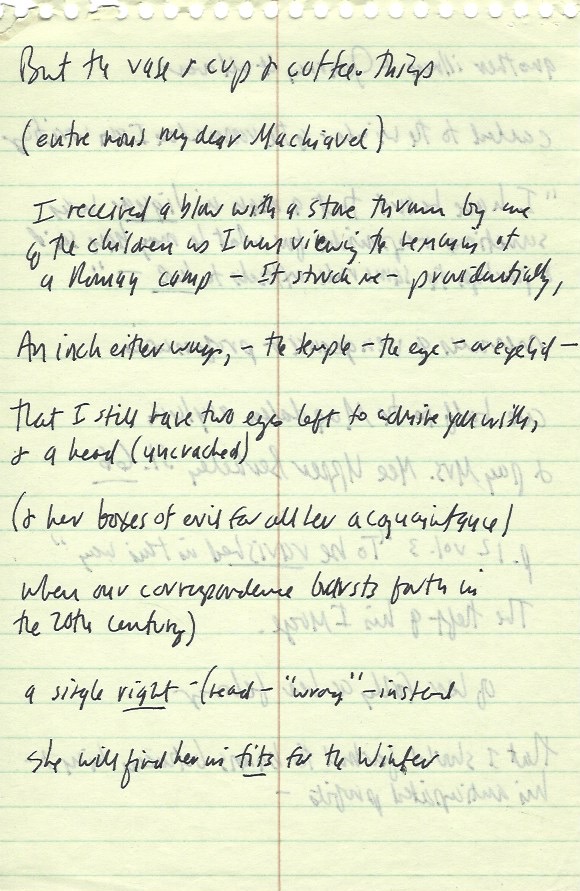 But the vase & cup & coffee-things
(entre nous my dear Machiavel)
I received a blow with a stone thrown by one
of the children as I was viewing the remains of
a Roman camp – It struck me – providentially,
An inch either ways, – the temple – the eye – or eyelid –
that I still have two eyes left to admire you with,
& a head (uncracked)
(& her boxes of evil for all her acquaintance)
when our correspondence bursts forth in
the 20th century)
a single right – (read – "wrong" – instead
she will find him in fits for the Winter